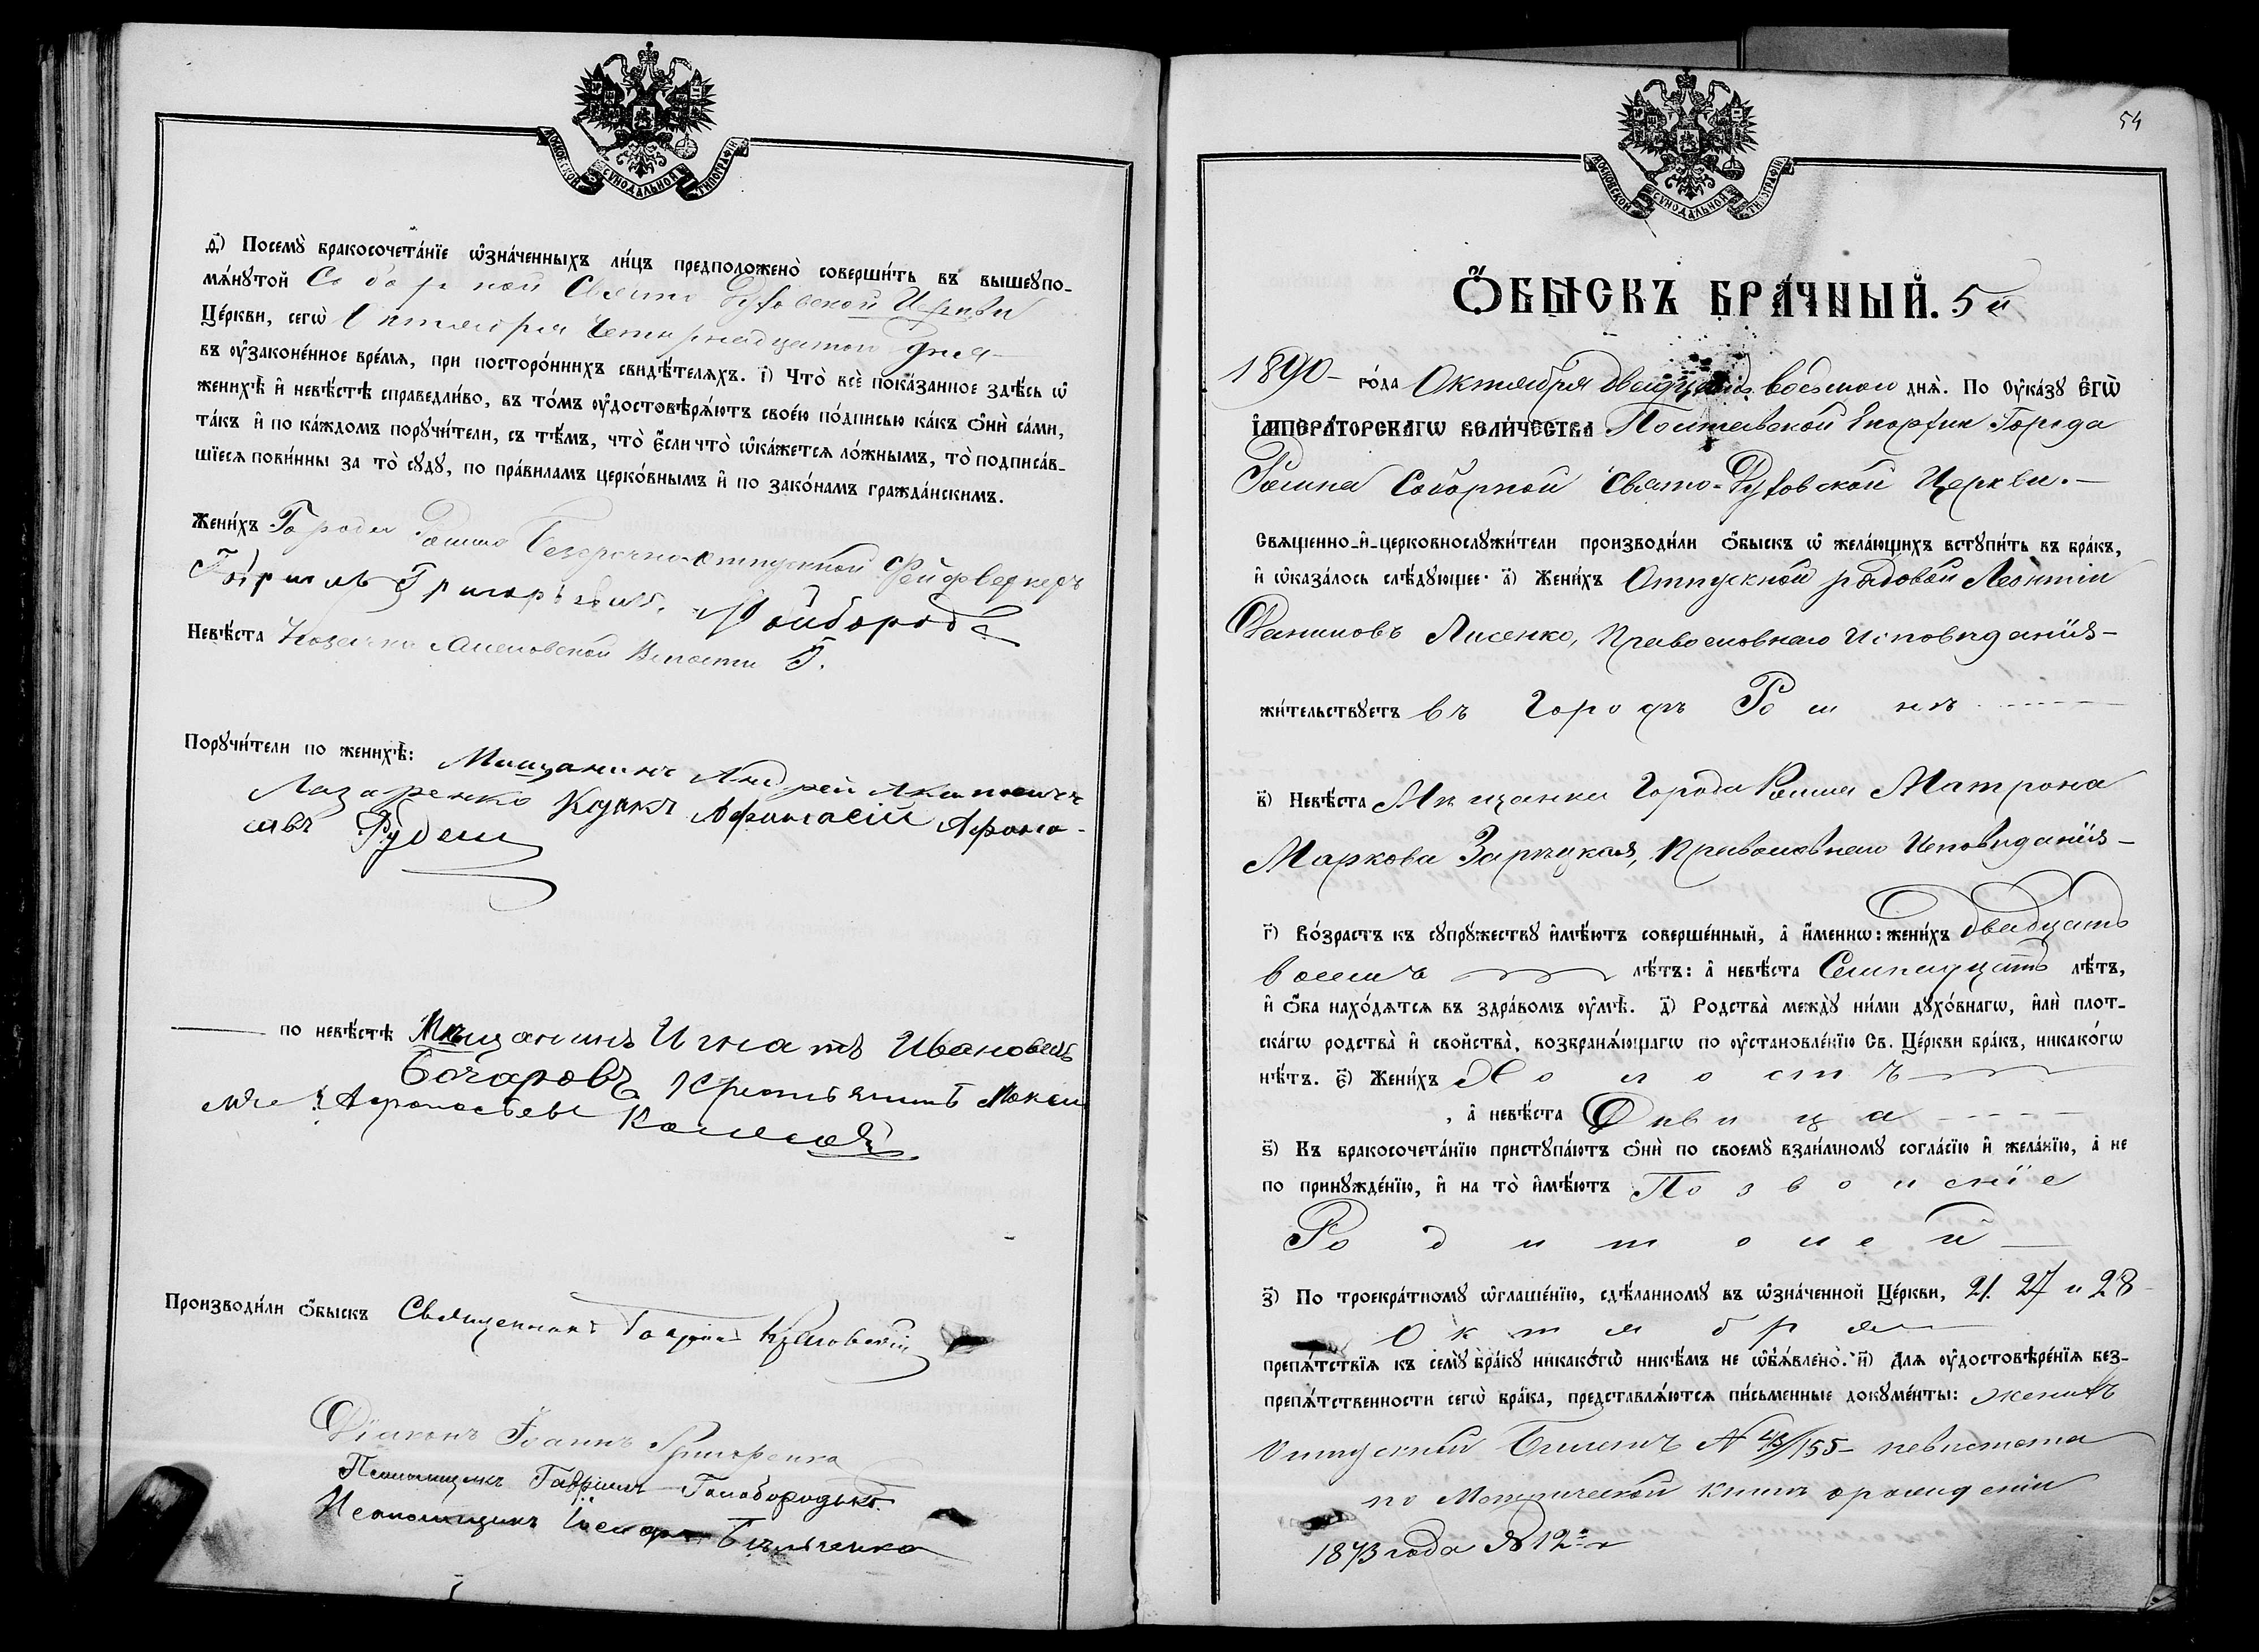 МОСКОВСКОЙ СѴНОДАЛЬНОЙ ТИПОГРАФІИ
д҃) Посемꙋ̀ бракосочета́нїе ѡ҆зна́ченныхъ ли́цъ предположено̀ соверши́ть въ вышеꙋпо-
мѧ́нꙋтой Соборной Свято Духовской Церкви
Це́ркви, сегѡ̀ Октября Четырнадцатого дня
въ ᲂу҆законе́нное вре́мѧ, при посторо́ннихъ свидѣ́телѧхъ. і҃) Что̀ всѐ пока́занное здѣ́сь ѡ҆
женихѣ̀ и҆ невѣ́стѣ справедли́во, въ то́мъ ᲂу҆достовѣрѧ́ютъ свое́ю по́дписью ка́къ ѻ҆нѝ са́ми,
та́къ и҆ по ка́ждомъ порꙋчи́тели, съ тѣ́мъ, что̀ є҆́сли что̀ ѡ҆ка́жетсѧ ло́жнымъ, то̀ подписа́в-
шїесѧ пови́нны за то̀ сꙋдꙋ̀, по пра́виламъ церко́внымъ и҆ по зако́намъ гражда́нскимъ.
Жени́хъ Города Ромна Безсрочно-отпускной Фейфверкеръ
Гаврiилъ Григорьевич. Майборода
Невѣ́ста Козачка Волости
Порꙋчи́тели по женихѣ̀: Мищанинъ Андрей
Лазаренко Афанасiй Афана-
сивъ Рудеш
по невѣ́стѣ Мѣщанинъ Игнатъ Ивановичъ
Бочаровъ Максим
Афанасьевъ
Производи́ли ѻ҆́быскъ Священникъ
Дiаконъ Iоаннъ Григоренко
Псаломщикъ Гаврiилъ Голобородько.
Псаломщикъ Бѣльченко
МОСКОВСКОЙ СѴНОДАЛЬНОЙ ТИПОГРАФІИ
54
Ѻ҆́БЫСКЪ БРА́ЧНЫЙ. 5й
1890 го́да Октября двадцать восьмого днѧ̀. По ᲂу҆ка́зꙋ є҆гѡ̀
і҆мпера́торскагѡ вели́чества Полтавской Епархiи Города
Ромна Соборной Свято-Духовской Церкви.
Свѧще́нно-и҆-церковнослꙋжи́тели производи́ли ѻ҆́быскъ ѡ҆ жела́ющихъ встꙋпи́ть въ бра́къ,
и҆ ѡ҆каза́лось слѣ́дꙋющее: а҃) Жени́хъ Отпускной рядовой Леонтiй
Данииловъ Лисенко, Православнаго Исповѣданiя
жи́тельствꙋетъ въ Городѣ Ромнѣ
в҃) Невѣ́ста Мѣщанка Города Ромна Матрона
Маркова Зарѣцкая, Православнаго Исповѣданiя
г҃) Во́зрастъ къ сꙋпрꙋ́жествꙋ и҆мѣ́ютъ соверше́нный, а҆ и҆́меннѡ: жени́хъ двадцать
восемъ лѣ́тъ: а҆ невѣ́ста Семнадцать лѣ́тъ,
и҆ ѻ҆́ба нахо́дѧтсѧ въ здра́вомъ ᲂу҆мѣ̀. д҃) Родства̀ междꙋ̀ ни́ми дꙋхо́внагѡ, и҆лѝ плот-
ска́гѡ родства̀ и҆ свойства̀, возбранѧ́ющагѡ по ᲂу҆становле́нїю Св. Це́ркви бра́къ, никако́гѡ
нѣ́тъ. є҃) Жени́хъ Холостъ
, а҆ невѣ́ста Дѣвица
ѕ҃) Къ бракосочета́нїю пристꙋпа́ютъ ѻ҆нѝ по своемꙋ̀ взаи́мномꙋ согла́сїю и҆ жела́нїю, а҆ не
по принꙋжде́нїю, и҆ на то̀ и҆мѣ́ютъ Позволенiе
Родителей
з҃) По троекра́тномꙋ ѡ҆глаше́нїю, сдѣ́ланномꙋ въ ѡ҆зна́ченной Це́ркви, 21. 27 и 28
Октября
препѧ́тствїѧ къ семꙋ̀ бра́кꙋ никако́гѡ никѣ́мъ не ѡ҆б̾ѧ́влено̀. и҃) Длѧ ᲂу҆достовѣре́нїѧ без-
препѧ́тственности сегѡ̀ бра́ка, представлѧ́ютсѧ пи́сьменные докꙋме́нты: женихъ
Отпускный Билетъ № /155 невѣста
по Метрической книгѣ о рожденiи
1873 года № 12